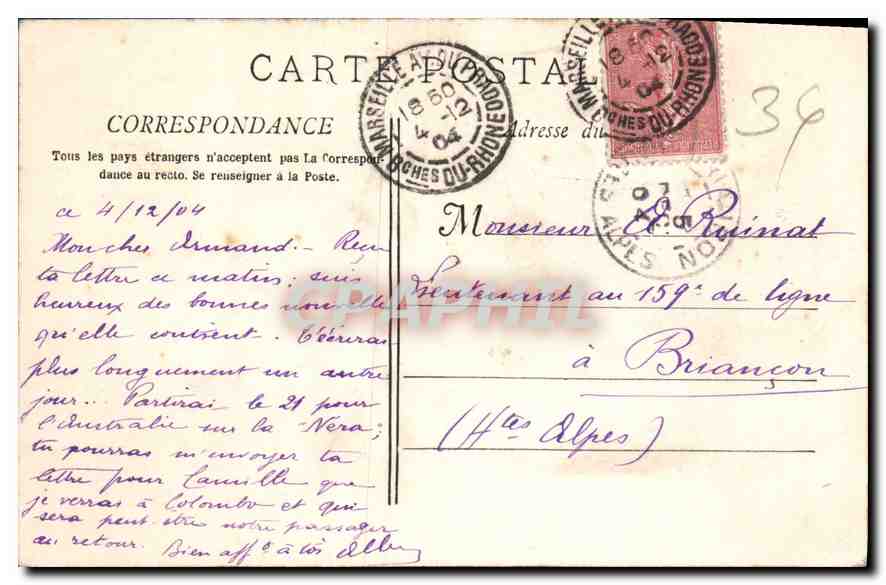 CARTE POSTALE
CORRESPONDANCE
Tous les pays étrangers n'acceptent pas La Correspon-
dance au recto. Se renseigner à la Poste.
Adresse du
MARSEILLE AV. DU PRADO
18 50
4 -12
04
BCHES DU-RHONE
MARSEILLE PRADO
18 50
4 -12
04
BCHES DU-RHONE
34
ALPES
04
ce 4/12/04
Mon cher Armand. Reçu
ta lettre ce matin; suis
heureux des bonnes nouvelles
qu'elle contient. T'écrirai
plus longuement un autre
jour... Partirai le 21 pour
l'Australie sur la "Néra";
tu pourras m'envoyer ta
lettre pour Camille que
je verrai à Colombo et qui
sera peut être notre passager
au retour. Bien aff à toi
Monsieur A Ruinat
Lieutenant au 159e de ligne
à Briançon
(Htes Alpes)
CARAPHIL